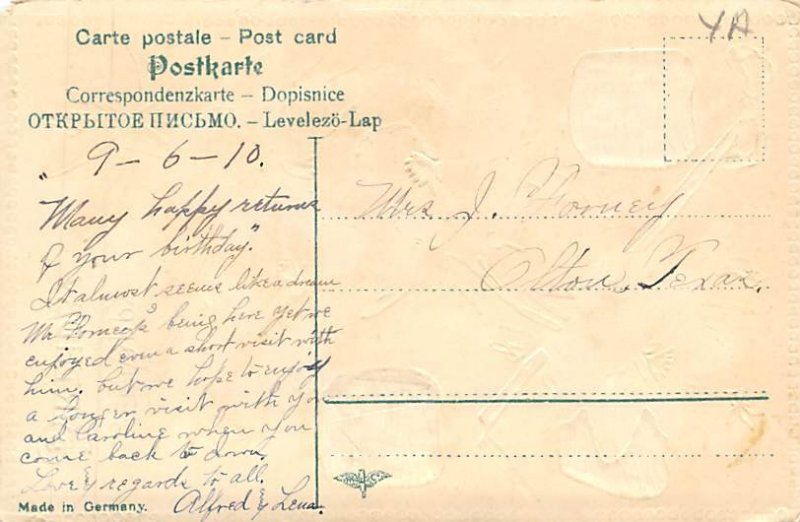 YA
Carte postale – Post card
Postkarte
Correspondenzkarte – Dopisnice
ОТКРЫТОЕ ПИСЬМО. – Levelezö-Lap
9 – 6 – 10.
"Many happy returns
of your birthday."
It almost seems like a dream
Mr Forney's being here yet we
enjoyed even a short visit with
him. but we hope to enjoy
a longer visit with you
and Caroline when you
come back to
Love & regards to all.
Alfred & Lena.
Mrs J. Forney
Olton, Texas.
Made in Germany.